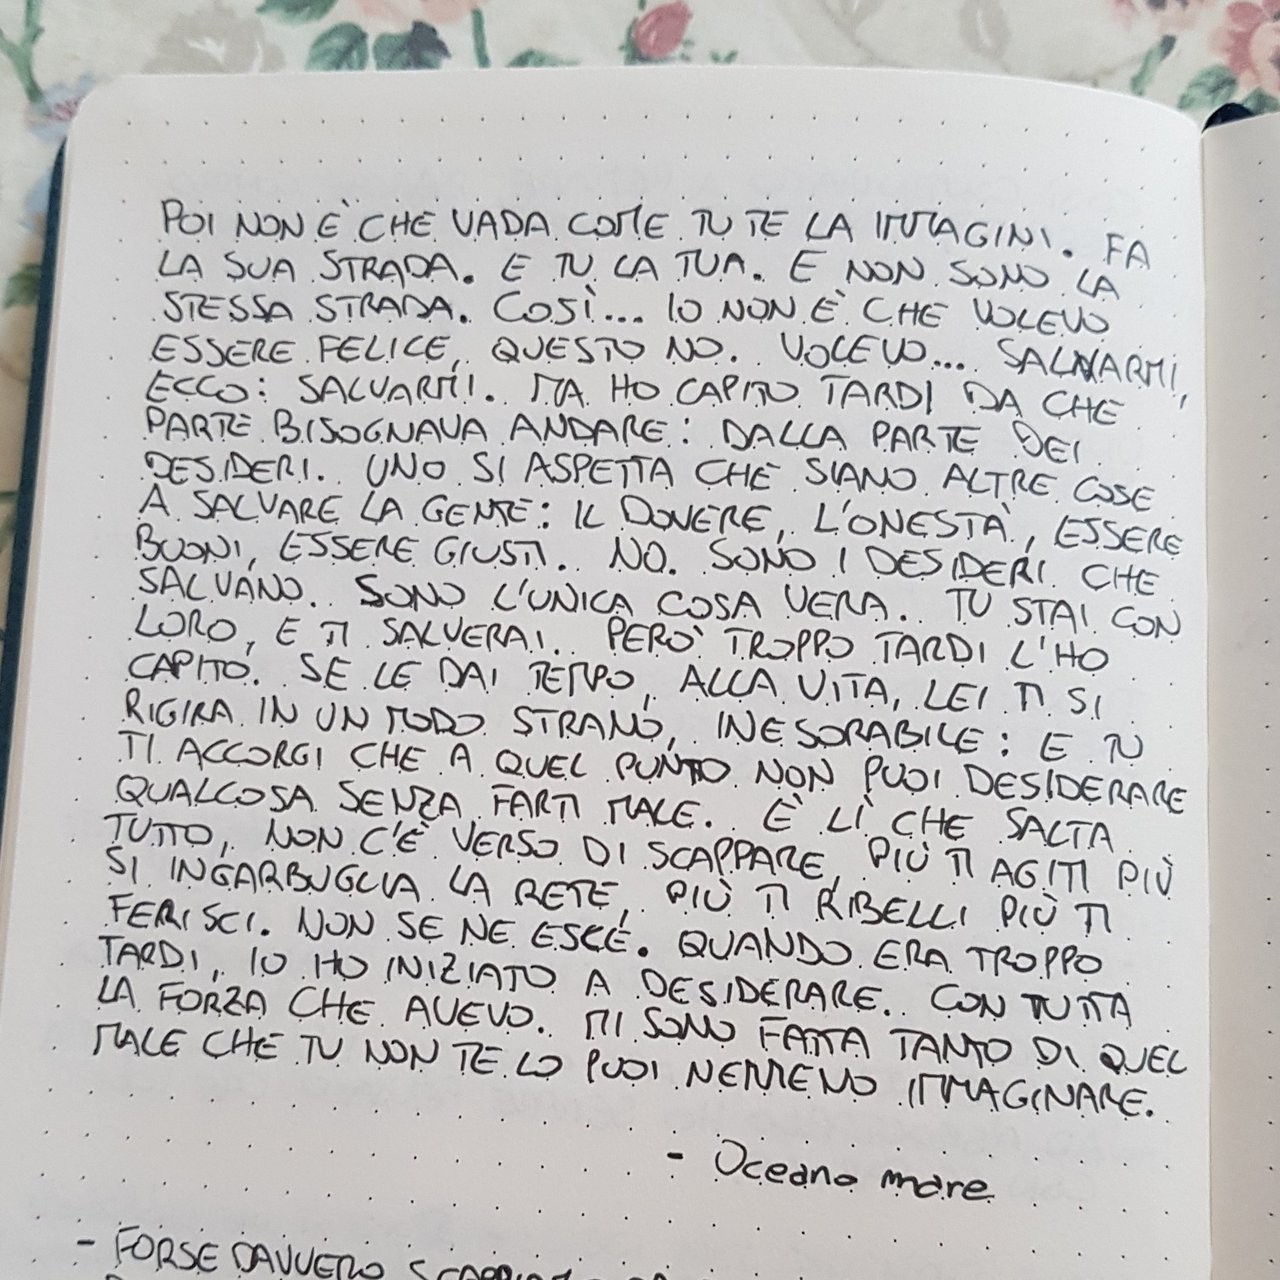 POI NON È CHE VADA COME TU TE LA IMMAGINI. FA
LA SUA STRADA. E TU LA TUA. E NON SONO LA
STESSA STRADA. COSÌ... IO NON È CHE VOLEVO
ESSERE FELICE, QUESTO NO. VOLEVO... SALVARMI,
ECCO: SALVARMI. MA HO CAPITO TARDI DA CHE
PARTE BISOGNAVA ANDARE: DALLA PARTE DEI
DESIDERI. UNO SI ASPETTA CHE SIANO ALTRE COSE
A SALVARE LA GENTE: IL DOVERE, L'ONESTÀ, ESSERE
BUONI, ESSERE GIUSTI. NO. SONO I DESIDERI CHE
SALVANO. SONO L'UNICA COSA VERA. TU STAI CON
LORO, E TI SALVERAI. PERÒ TROPPO TARDI L'HO
CAPITO. SE LE DAI TEMPO, ALLA VITA, LEI TI SI
RIGIRA IN UN MODO STRANO, INESORABILE: E TU
TI ACCORGI CHE A QUEL PUNTO NON PUOI DESIDERARE
QUALCOSA SENZA FARTI MALE. È LÌ CHE SALTA
TUTTO, NON C'È VERSO DI SCAPPARE, PIÙ TI AGITI PIÙ
SI INGARBUGLIA LA RETE, PIÙ TI RIBELLI PIÙ TI
FERISCI. NON SE NE ESCE. QUANDO ERA TROPPO
TARDI, IO HO INIZIATO A DESIDERARE. CON TUTTA
LA FORZA CHE AVEVO. MI SONO FATTA TANTO DI QUEL
MALE CHE TU NON TE LO PUOI NEMMENO IMMAGINARE.
- Oceano mare
- FORSE DAVVERO